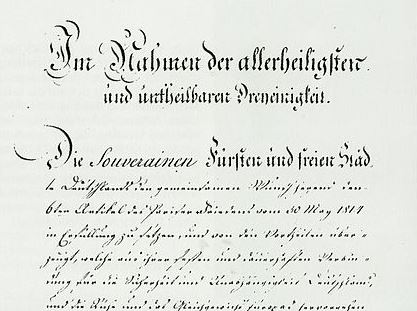 Im Nahmen der allerheiligsten
und untheilbaren Dreyeinigkeit.
Die Souverainen Fürsten und freien Städ-
te Deutschlands den gemeinsamen Wunsch hegend den
6ten Artikel des Pariser Friedens vom 30 May 1814
in Erfüllung zu setzen, und von den Vortheilen über-
zeugt, welche aus ihrer festen und dauerhaften Verbin-
dung für die Sicherheit und Unabhängigkeit Deutschlands,
und die Ruhe und das Gleichgewicht Europas hervorgehen